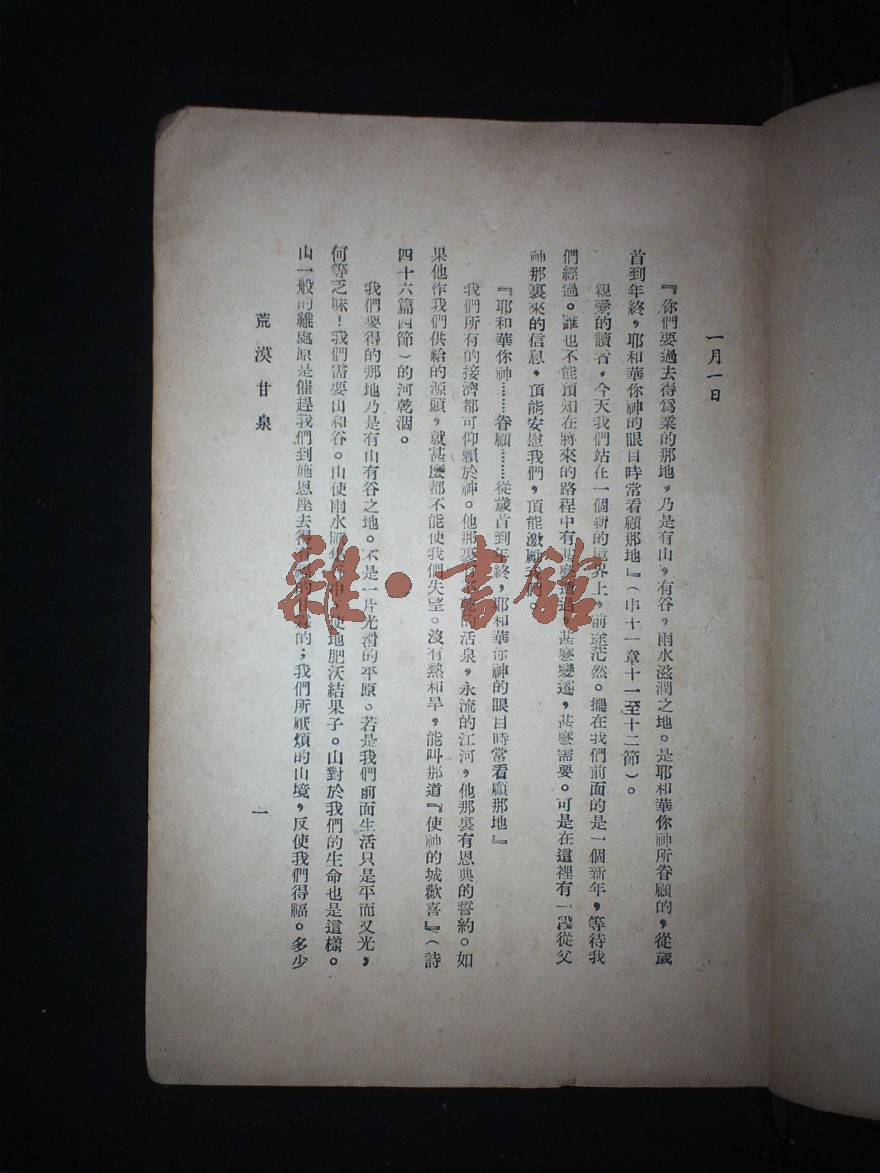 一月一日
『你們要過去得爲業的那地，乃是有山，有谷，雨水滋潤之地。是耶和華你神所眷顧的，從歲
首到年終，耶和華你神的眼目時常看顧那地』（申十一章十一至十二節）。
親愛的讀者，今天我們站在一個新的境界上，前途茫然。擺在我們前面的是一個新年，等待我
們經過。誰也不能預知在將來的路程中有甚麼遭遇，甚麼變遷，甚麼需要。可是在這裡有一段從父
神那裏來的信息，頂能安慰我們，頂能激勵我們。
『耶和華你神……眷顧……從歲首到年終，耶和華你神的眼目時常看顧那地』
我們所有的接濟都可仰賴於神。他那裏有的活泉，永流的江河，他那裏有恩典的誓約。如
果他作我們供給的源頭，就甚麼都不能使我們失望。沒有熱和旱，能叫那道『使神的城歡喜』（詩
四十六篇四節）的河乾涸。
我們要得的那地乃是有山有谷之地。不是一片光滑的平原。若是我們前面生活只是平而又光，
何等乏味！我們需要山和谷。山使雨水中，使地肥沃結果子。山對於我們的生命也是這樣。
山一般的難處原是催趕我們到施恩座去得的；我們所厭煩的山境，反使我們得福。多少
荒漠甘泉
一
雜·書館